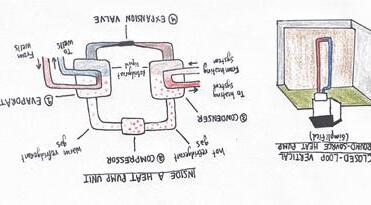 CLOSED-LOOP VERTICAL
ROUND-SOURCE HEAT PUMP
(simplified)
INSIDE A HEAT PUMP UNIT
② COMPRESSOR
hot refrigerant
gas
warm refrigerant
gas
③ CONDENSER
EVAPORAT
To heating
system
From heating
system
refrigerant
liquid
To
wells
From
wells
④ EXPANSION VALVE